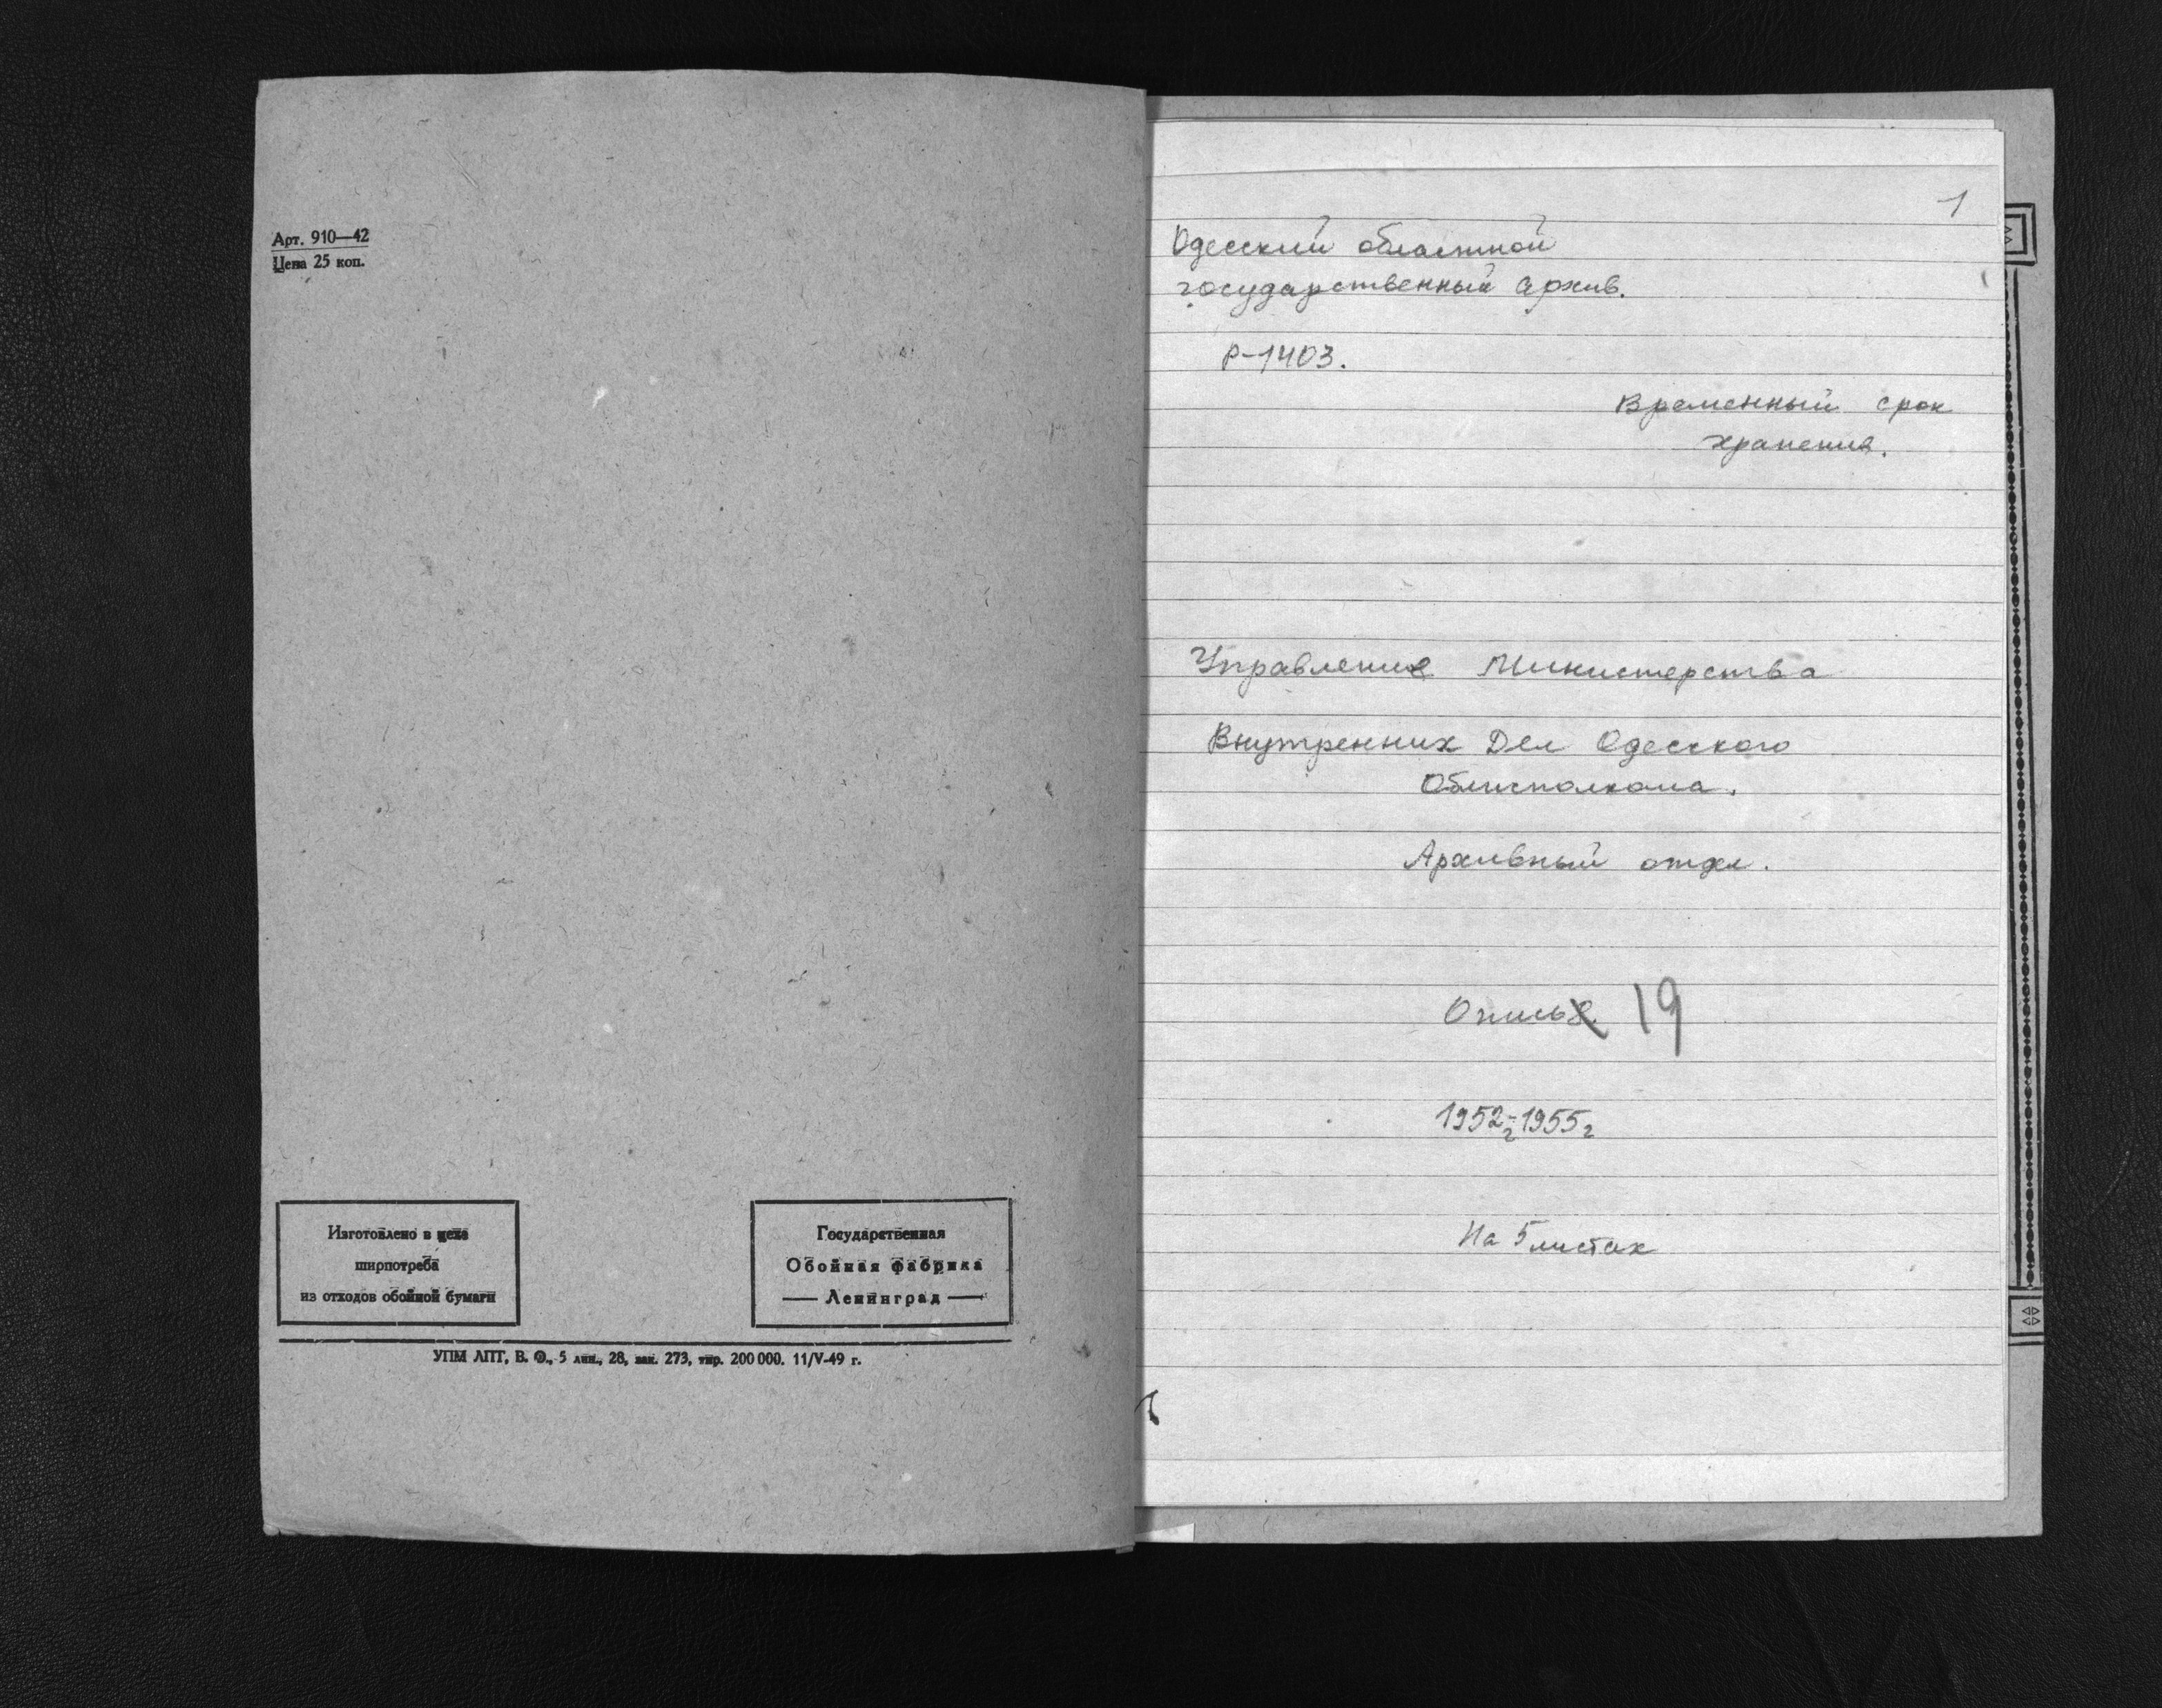 Арт. 910—42
Цена 25 коп.
Изготовлено в цехе
ширпотреба
из отходов обойной бумаги
Государственная
Обойная фабрика
— Ленинград —
УПМ ЛПТ, В. О., 5 лин., 28, зак. 273, тир. 200 000. 11/V-49 г.
1
Одесский областной
государственный архив.
Р-1403.
Временный срок
хранения.
Управление Министерства
Внутренних Дел Одесского
Облисполкома.
Архивный отдел.
Опись 19
1952г-1955г
На 5 листах